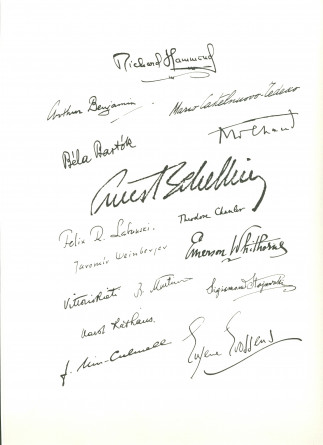 Richard Hammond
Arthur Benjamin
Mario Castelnuovo-Tedesco
Béla Bartók
Ernest Schelling
Felix R. Labunski
Theodore Chanler
Jaromir Weinberger
Emerson Whithorne
Vittorio Rieti
B. Martinu
Sigismond Stojowski
Karol Rathaus
J. Nin-Culmell
Eugene Goossens